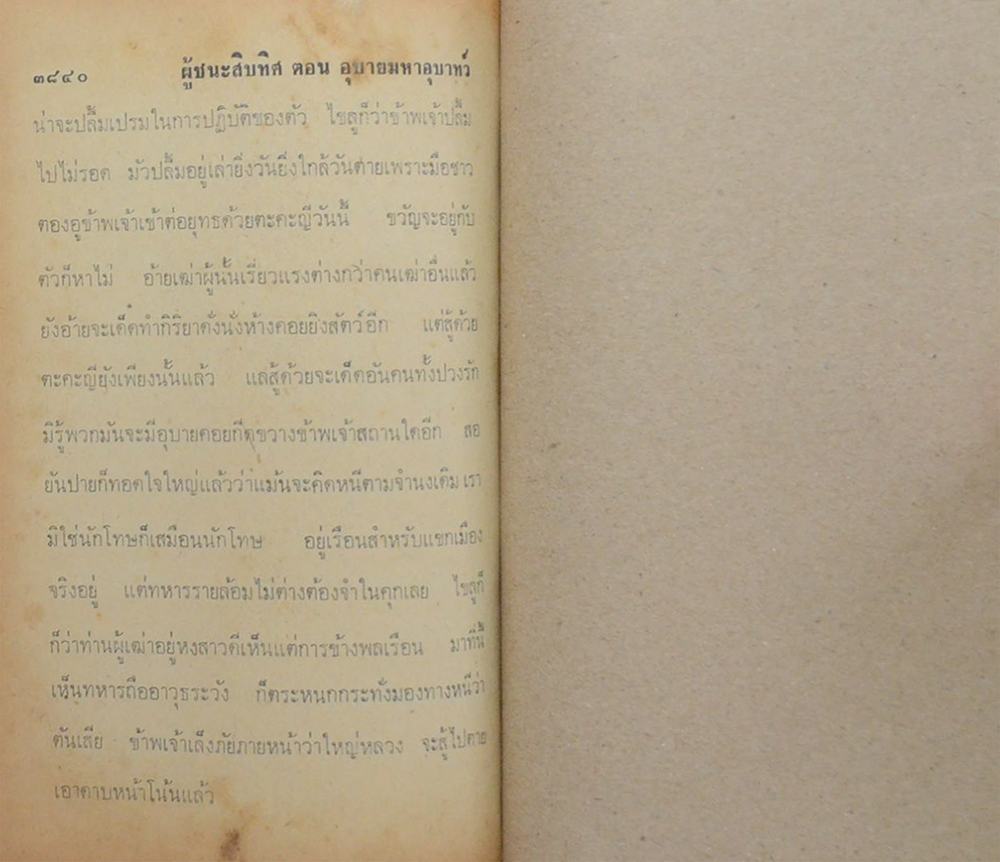 ๓๘๔๐ ผู้ชนะสิบทิศ ตอน อุบายมหาอุบาทว์
น่าจะปลื้มเปรมในการปฏิบัติของตัว ไขลูก็ว่าข้าพเจ้าปลื้ม
ไปไม่รอด มัวปลื้มอยู่เล่ายิ่งวันยิ่งใกล้วันตายเพราะมือชาว
ตองอูข้าพเจ้าเข้าต่อยุทธด้วยตะคะญีวันนี้ ขวัญจะอยู่กับ
ตัวก็หาไม่ อ้ายเฒ่าผู้นั้นเรี่ยวแรงต่างกว่าคนเฒ่าอื่นแล้ว
ยังอ้ายจะเด็ดทำกิริยาดั่งนั่งห้างคอยยิงสัตว์อีก แต่สู้ด้วย
ตะคะญียังเพียงนั้นแล้ว แลสู้ด้วยจะเด็ดอันคนทั้งปวงรัก
มิรู้พวกมันจะมีอุบายคอยกีดขวางข้าพเจ้าสถานใดอีก สอ
ยันปายก็ทอดใจใหญ่แล้วว่าแม้นจะคิดหนีตามจำนงเดิม เรา
มิใช่นักโทษก็เสมือนนักโทษ อยู่เรือนสำหรับแขกเมือง
จริงอยู่ แต่ทหารรายล้อมไม่ต่างต้องจำในคุกเลย ไขลูก็
ก็ว่าท่านผู้เฒ่าอยู่หงสาวดีเห็นแต่การข้างพลเรือน มาที่นี้
เห็นทหารถืออาวุธระวัง ก็ตระหนกกระทั่งมองทางหนีว่า
ตันเสีย ข้าพเจ้าเล็งภัยภายหน้าว่าใหญ่หลวง จะสู้ไปตาย
เอาดาบหน้าโน้นแล้ว